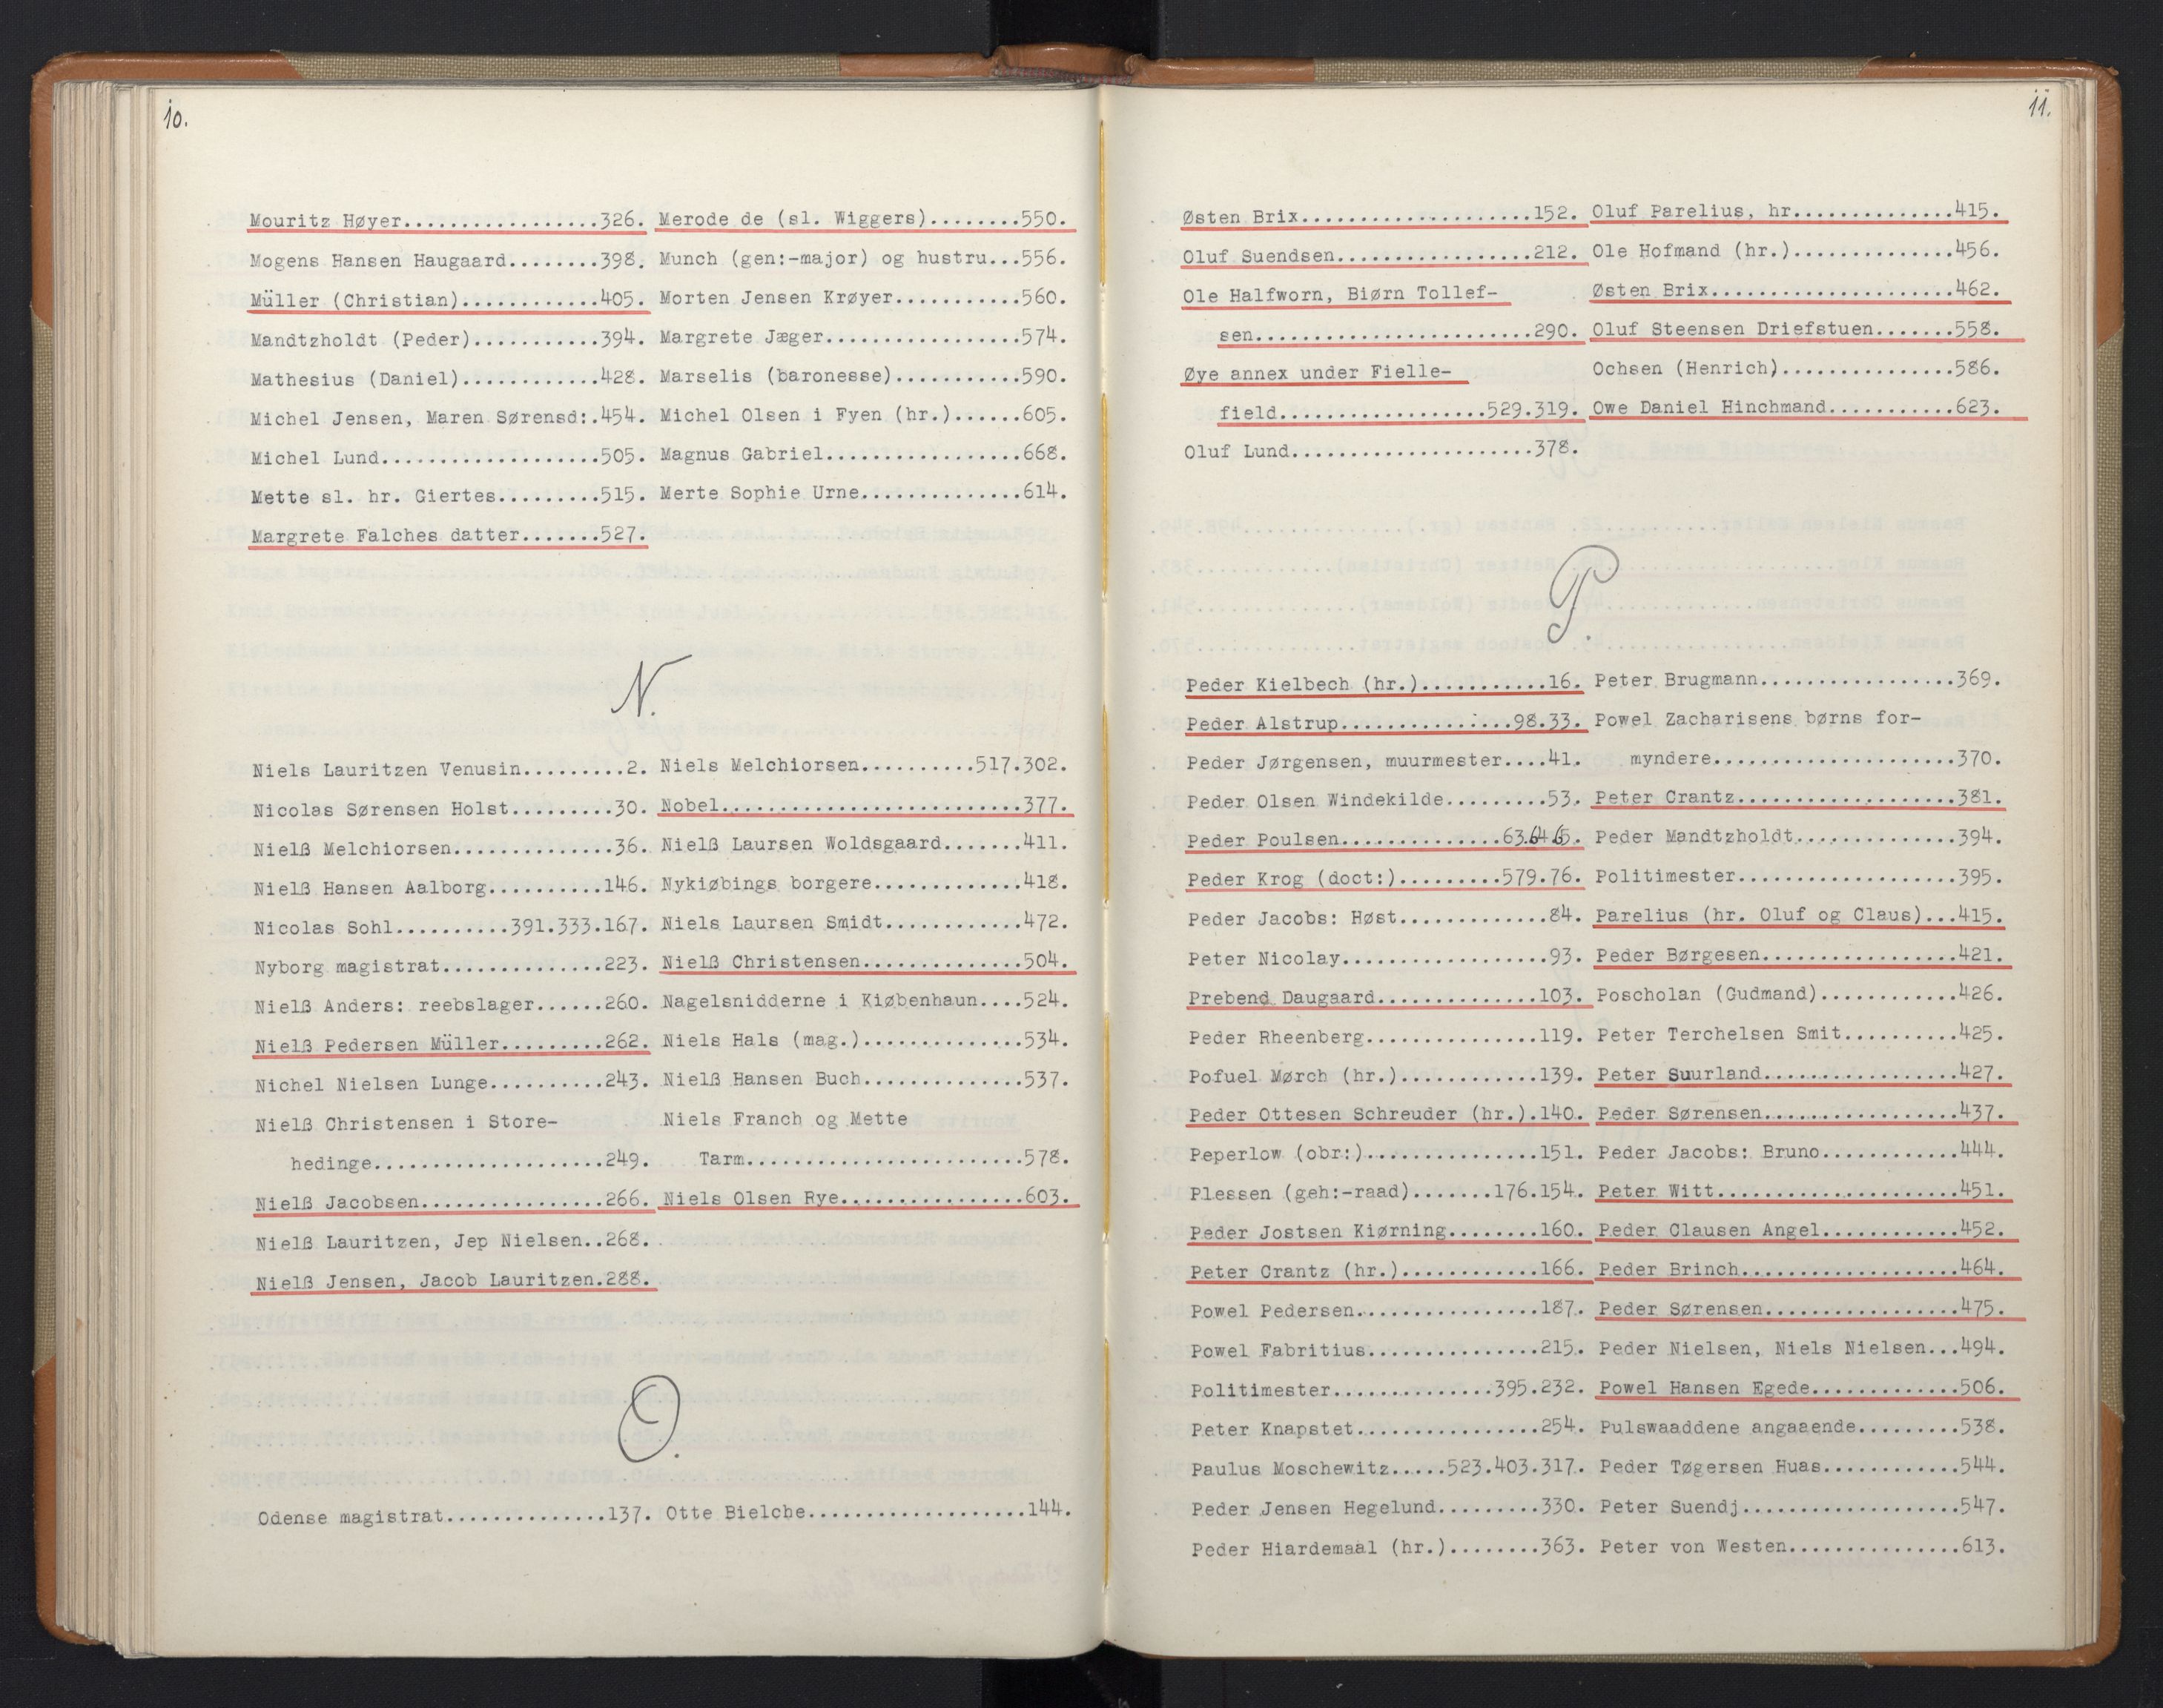 10.
Mouritz Høyer.................326.
Mogens Hansen Haugaard........398.
Müller (Christian)............405.
Mandtzholdt (Peder)...........394.
Mathesius (Daniel)............428.
Michel Jensen, Maren Sørensd:.454.
Michel Lund...................505.
Mette sl. hr. Giertes.........515.
Margrete Falches datter.......527.
Merode de (sl. Wiggers)........550.
Munch (gen:-major) og hustru...556.
Morten Jensen Krøyer...........560.
Margrete Jæger.................574.
Marselis (baronesse)...........590.
Michel Olsen i Fyen (hr.)......605.
Magnus Gabriel.................668.
Merte Sophie Urne..............614.
N.
Niels Lauritzen Venusin.........2.
Nicolas Sørensen Holst.........30.
Nielß Melchiorsen..............36.
Nielß Hansen Aalborg..........146.
Nicolas Sohl..........391.333.167.
Nyborg magistrat..............223.
Nielß Anders: reebslager......260.
Nielß Pedersen Müller.........262.
Nichel Nielsen Lunge..........243.
Nielß Christensen i Store-
hedinge....................249.
Nielß Jacobsen................266.
Nielß Lauritzen, Jep Nielsen..268.
Nielß Jensen, Jacob Lauritzen.288.
Niels Melchiorsen..........517.302.
Nobel..........................377.
Nielß Laursen Woldsgaard.......411.
Nykiøbings borgere.............418.
Niels Laursen Smidt............472.
Nielß Christensen..............504.
Nagelsnidderne i Kiøbenhaun....524.
Niels Hals (mag.)..............534.
Nielß Hansen Buch..............537.
Niels Franch og Mette
Tarm........................578.
Niels Olsen Rye................603.
O.
Odense magistrat..............137.
Otte Bielche...................144.
11.
Østen Brix....................152.
Oluf Suendsen.................212.
Ole Halfworn, Biørn Tollef-
sen........................290.
Øye annex under Fielle-
field..................529.319.
Oluf Lund.....................378.
Oluf Parelius, hr..............415.
Ole Hofmand (hr.)..............456.
Østen Brix.....................462.
Oluf Steensen Driefstuen.......558.
Ochsen (Henrich)...............586.
Owe Daniel Hinchmand...........623.
P.
Peder Kielbech (hr.)...........16.
Peder Alstrup...............98.33.
Peder Jørgensen, muurmester....41.
Peder Olsen Windekilde.........53.
Peder Poulsen..............63.64.65.
Peder Krog (doct:).........579.76.
Peder Jacobs: Høst.............84.
Peter Nicolay..................93.
Prebend Daugaard..............103.
Peder Rheenberg...............119.
Pofuel Mørch (hr.)............139.
Peder Ottesen Schreuder (hr.).140.
Peperlow (obr:)...............151.
Plessen (geh:-raad).......176.154.
Peder Jostsen Kiørning........160.
Peter Crantz (hr.)............166.
Powel Pedersen................187.
Powel Fabritius...............215.
Politimester..............395.232.
Peter Knapstet................254.
Paulus Moschewitz.....523.403.317.
Peder Jensen Hegelund.........330.
Peder Hiardemaal (hr.)........363.
Peter Brugmann.................369.
Powel Zacharisens børns for-
myndere.....................370.
Peter Crantz...................381.
Peder Mandtzholdt..............394.
Politimester...................395.
Parelius (hr. Oluf og Claus)...415.
Peder Børgesen.................421.
Poscholan (Gudmand)............426.
Peter Terchelsen Smit..........425.
Peter Suurland.................427.
Peder Sørensen.................437.
Peder Jacobs: Bruno............444.
Peter Witt.....................451.
Peder Clausen Angel............452.
Peder Brinch...................464.
Peder Sørensen.................475.
Peder Nielsen, Niels Nielsen...494.
Powel Hansen Egede.............506.
Pulswaaddene angaaende.........538.
Peder Tøgersen Huas............544.
Peter Suendj...................547.
Peter von Westen...............613.